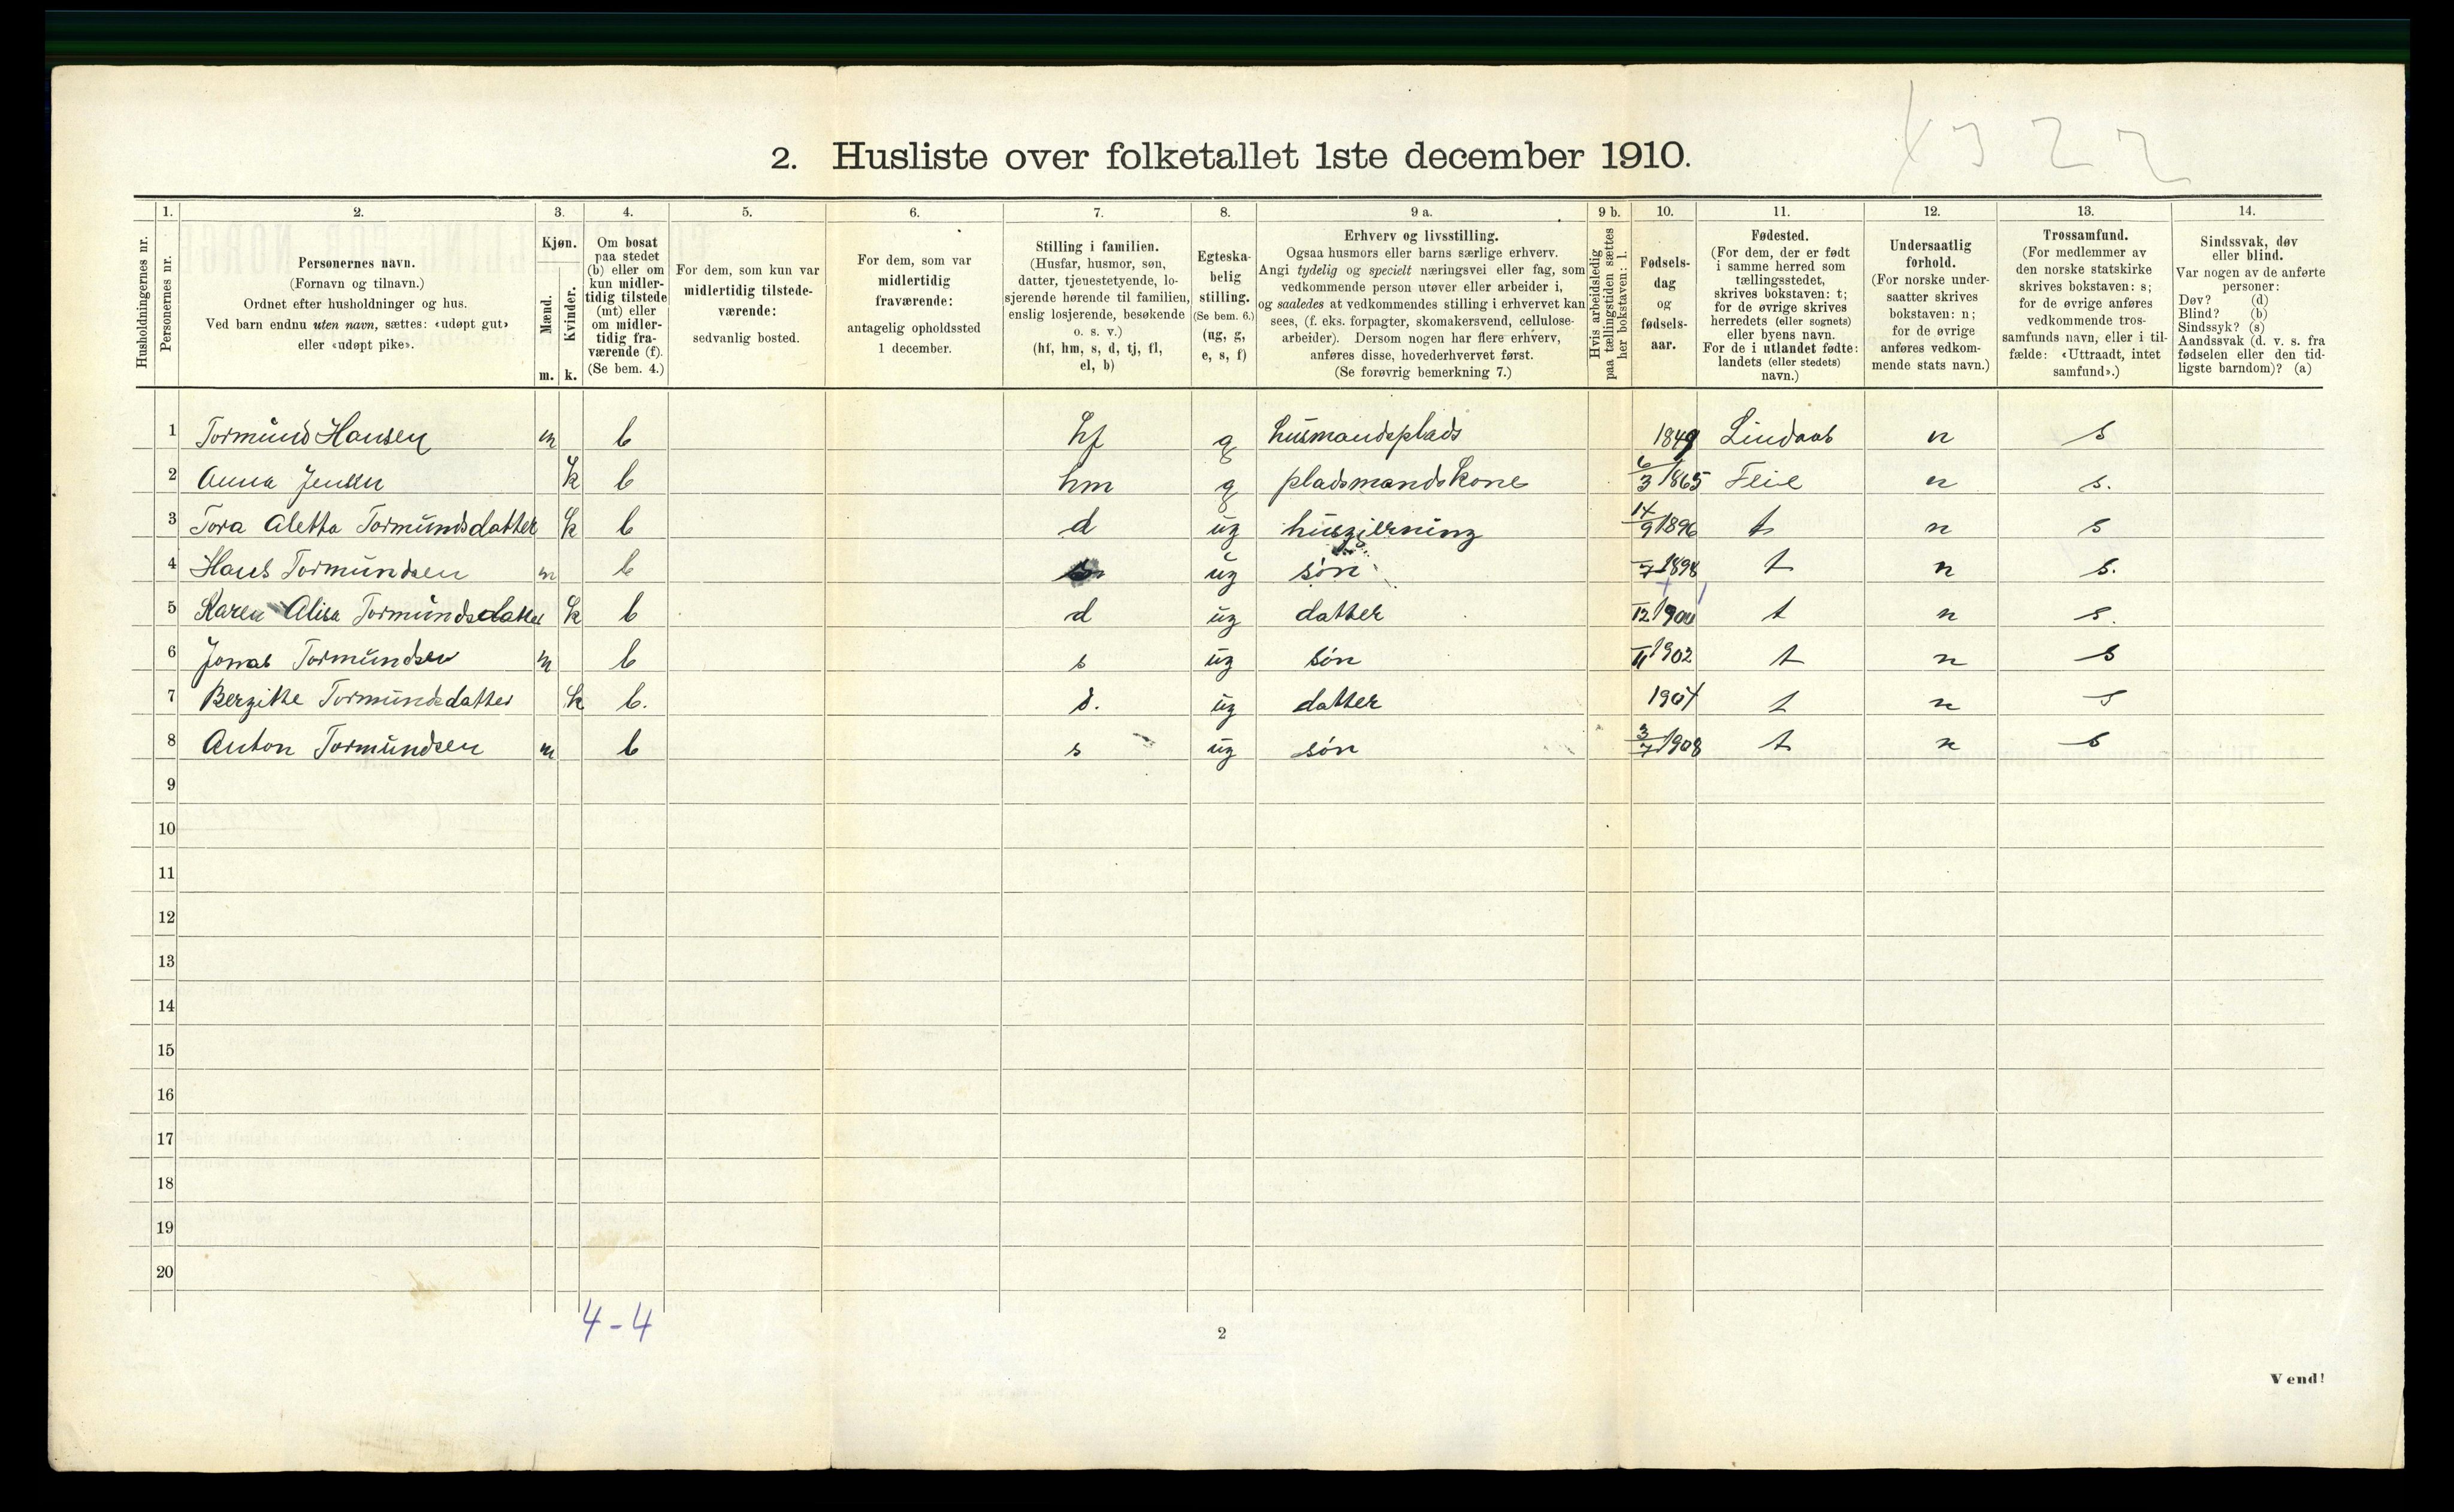 2. Husliste over folketallet 1ste december 1910.
1. 2. 3. 4. 5. 6. 7. 8. 9 a. 9 b. 10. 11. 12. 13. 14.
Husholdningernes nr.
Personernes nr.
Personernes navn.
(Fornavn og tilnavn.)
Ordnet efter husholdninger og hus.
Ved barn endnu uten navn, sættes: «udøpt gut»
eller «udøpt pike».
Kjøn.
Mænd.
Kvinder.
m. k.
Om bosat
paa stedet
(b) eller om
kun midler-
tidig tilstede
(mt) eller
om midler-
tidig fra-
værende (f).
(Se bem. 4.)
For dem, som kun var
midlertidig tilstede-
værende:
sedvanlig bosted.
For dem, som var
midlertidig
fraværende:
antagelig opholdssted
1 december.
Stilling i familien.
(Husfar, husmor, søn,
datter, tjenestetyende, lo-
sjerende hørende til familien,
enslig losjerende, besøkende
o. s. v.)
(hf, hm, s, d, tj, fl,
el, b)
Egteska-
belig
stilling.
(Se bem. 6.)
(ug, g,
e, s, f)
Erhverv og livsstilling.
Ogsaa husmors eller barns særlige erhverv.
Angi tydelig og specielt næringsvei eller fag, som
vedkommende person utøver eller arbeider i,
og saaledes at vedkommendes stilling i erhvervet kan
sees, (f. eks. forpagter, skomakersvend, cellulose-
arbeider). Dersom nogen har flere erhverv,
anføres disse, hovederhvervet først.
(Se forøvrig bemerkning 7.)
Hvis arbeidsledig
paa tællingstiden sættes
her bokstaven: l.
Fødsels-
dag
og
fødsels-
aar.
Fødested.
(For dem, der er født
i samme herred som
tællingsstedet,
skrives bokstaven: t;
for de øvrige skrives
herredets (eller sognets)
eller byens navn.
For de i utlandet fødte:
landets (eller stedets)
navn.)
Undersaatlig
forhold.
(For norske under-
saatter skrives
bokstaven: n;
for de øvrige
anføres vedkom-
mende stats navn.)
Trossamfund.
(For medlemmer av
den norske statskirke
skrives bokstaven: s;
for de øvrige anføres
vedkommende tros-
samfunds navn, eller i til-
fælde: «Uttraadt, intet
samfund».)
Sindssvak, døv
eller blind.
Var nogen av de anførte
personer:
Døv? (d)
Blind? (b)
Sindssyk? (s)
Aandssvak (d. v. s. fra
fødselen eller den tid-
ligste barndom)? (a)
1 Tormund Hansen m b hf g husmandsplads 1849 Lindaas n s
2 Anna Jensen k b hm g pladsmandskone 6/3 1865 Feie n s.
3 Tora Aletta Tormundsdatter k b d ug husgjerning 14/9 1896 t n s
4 Hans Tormundsen m b ug søn /7 1898 t n s.
5 Karen Alisa Tormundsdatter k b d ug datter /12 1900 t n s.
6 Jonas Tormundsen m b s ug søn /11 1902 t n s
7 Bergitte Tormundsdatter k b. d. ug datter 1904 t n s
8 Anton Tormundsen m b s ug søn 3/7 1908 t n s
9
10
11
12
13
14
15
16
17
18
19
20
4-4
2
Vend!